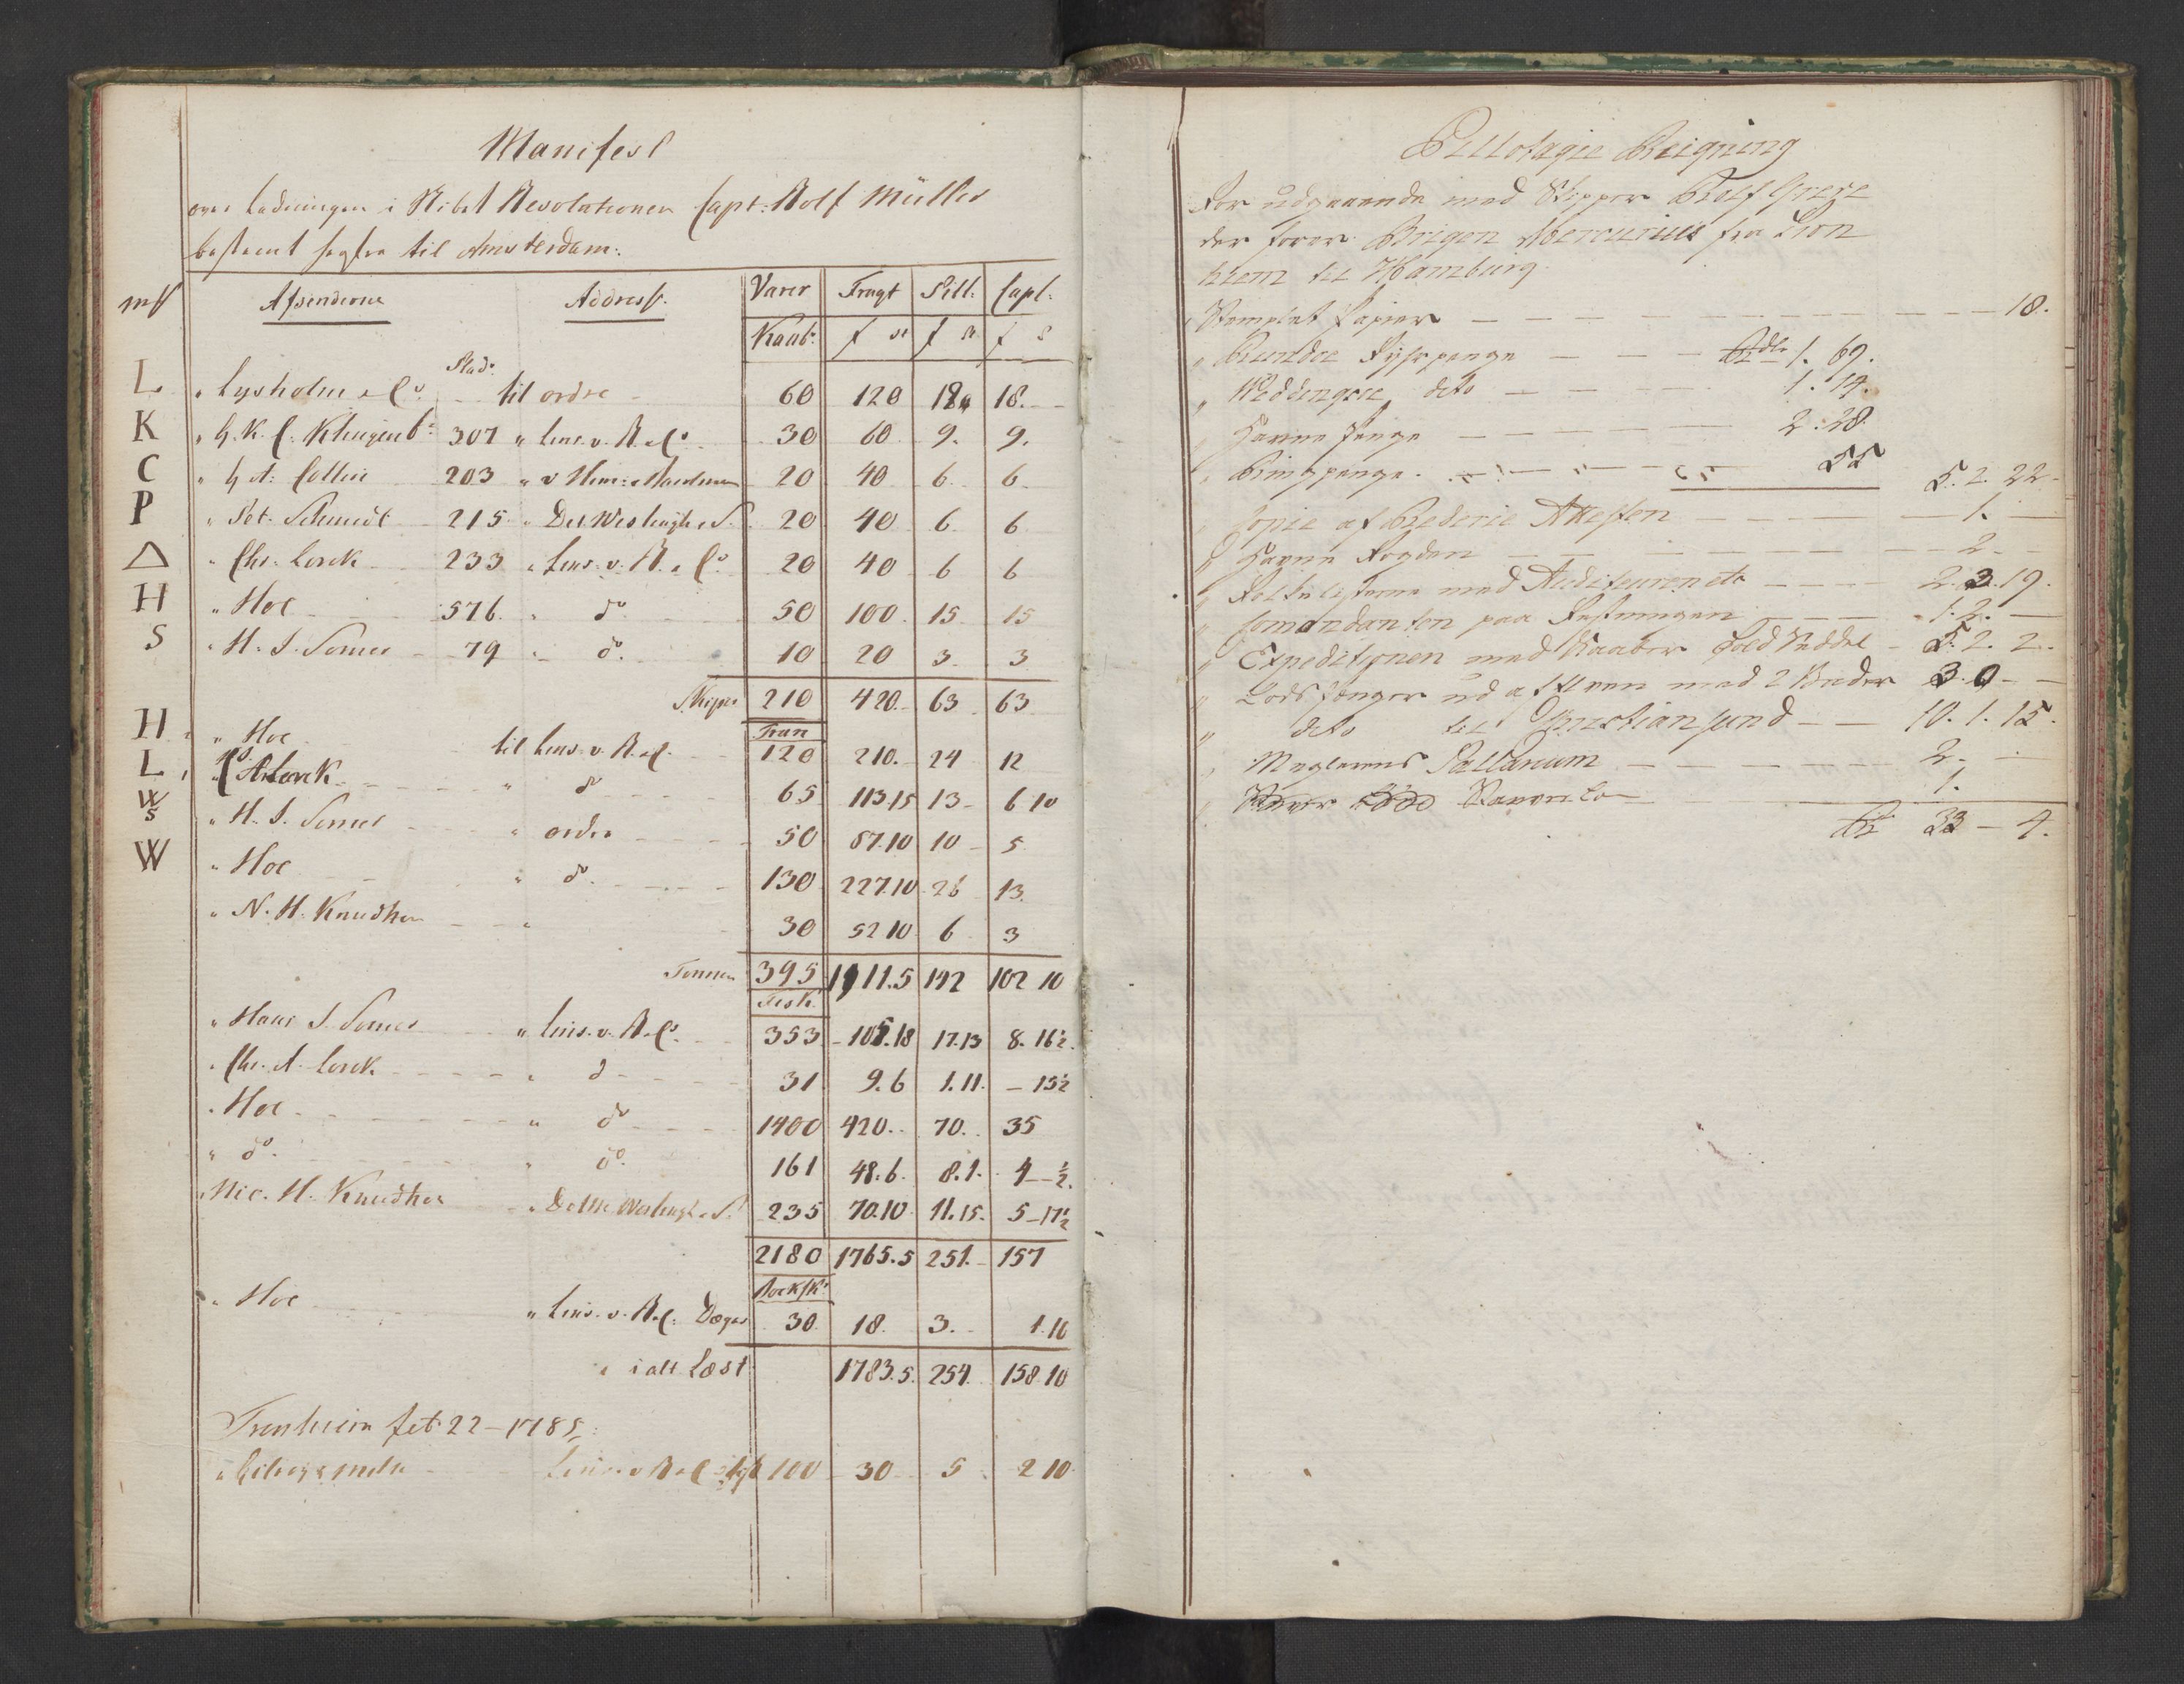 Manifest
over Ladningen i Skibet Revolutionen Capt: Rolf Müller
bestemt herfra til Amsterdam:
mk Afsenderne Addresse. Varer Fragt Pill: Capl:
Kaab: f st f st f s
Stad:
L " Lysholm & Co. til ordre 60 120 18 18.
K " H. K. C. Klingenb: 307 " Lens. v. R. & Co. 30 60 9. 9.
C " H A: Collin 203 " v 20 40 6. 6.
P " Pet. Schmidt 215. " 20 40 6. 6
△ " Chr. Lorck 233 " Lens: v. R. & Co. 20 40 6 6
H " Hoe 576. " do 50 100. 15. 15
S " H. S. Somer 79 " do. 10 20 3. 3
210 420. 63 63
Tran
H. " Hoe til Lens. v. R. & C. 120 210. 24 12
L, " Lorck " do 65 113.15 13 6 10
WS " H. S. Somer " ordre 50 87.10 10 5
W " Hoe " do. 130 227.10 26 13.
" N. H. Knudtzon " 30 52 10 6 3
Tønner 395 1111.5 142 102 10
Fisk
" Hans S. Somer " Lens. v. R. & Co. 353 105.18 17.13 8. 16½.
" Chr. A. Lorck " d 31 9. 6 1. 11. – 15½
" Hoe " do 1400 420. 70. 35
" do. " do. 161 48. 6. 8. 1. 4 – ½.
" Nic. H. Knudtzon " 235 70.10 11. 15. 5 – 17½
2180 1765. 5 251. 157
" Hoe " Lens. v. R. & C: Voger 30 18. 3. 1. 10
" i alt Læst 1783. 5. 254. 158. 10
Tronhiem feb 22 – 1785:
100 30 5 2 10
Pillotagie Reigning
For udgaaende med Skipper Rolf Grere
der fører Brigen Mercurius fra Tron
hiem til Hamburg
Stemplet Papier 18.
" Rundøe Fyhrpenge Rdlr 1. 69.
" deto 1. 14.
" Havne Penge 2. 28.
" Ringpenge 55
5. 2. 22.
" Copie af Rederie Attesten 1.
" Havne Fogden 2.
" med Auditeuren etc 2. 3. 19.
" Comandanten paa Festningen 1. 2.
" Expeditionen med Kaaber Told Seddel 5. 2. 2.
" Lods Penger ud af Elven med 2 Bader 3. 0
" deto til Christiansund 10. 1. 15.
" Meglerens Sallarium 2.
1.
Rd 33 – 4.